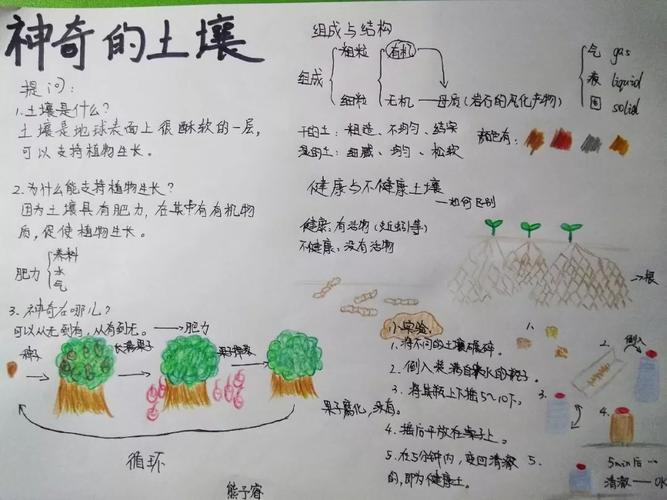 神奇的土壤
提问:
1.土壤是什么?
土壤是地球表面上很酥软的一层,
可以支持植物生长。
2.为什么能支持植物生长?
因为土壤具有肥力,在其中有有机物
质,促使植物生长。
肥力
养料
水
气
3.神奇在哪儿?
可以从无到有,从有到无。→肥力
长满果子
果子掉落
果子腐化,没有。
循环
熊子睿
组成与结构
组成
粗粒
细粒
有机
无机
母质(岩石的风化产物)
气 gas
液 liquid
固 solid
干的土:粗造、不均匀、结实
湿的土:细腻、均匀、松软
颜色有:
健康与不健康土壤
—如何区别
健康:有活物(蚯蚓等)
不健康:没有活物
根
小实验
1.将不同的土壤碾碎。
2.倒入装满自来水的瓶子。
3.将其瓶上下摇5~10下。
4.摇后平放在桌子上。
5.在5分钟内,变回清澈
的,即为健康土。
1.
2.
倒入
3.
4.
5.
5min后…
清澈—OK